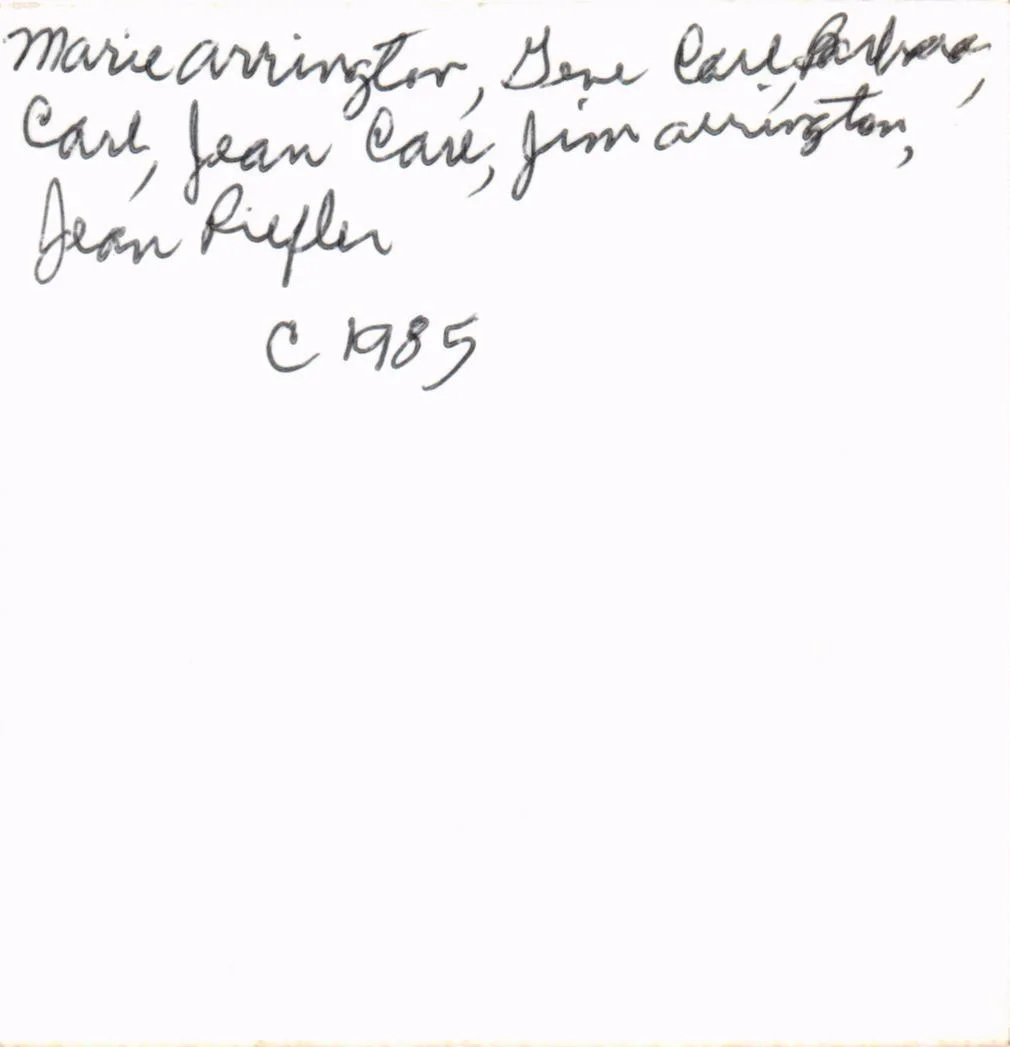 Marie Arrington, Gene Carl, Barbara,
Carl, Jean Carl, Jim Arrington,
Jean Riefler
C 1985